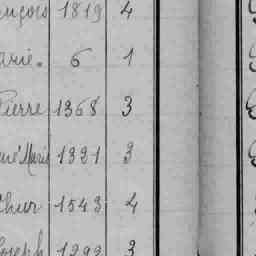 ançois 1819 4
arie. 6 1
Pierre 1368 3
ené Marie 1321 3
thur 1543 4
Joseph 1292 3